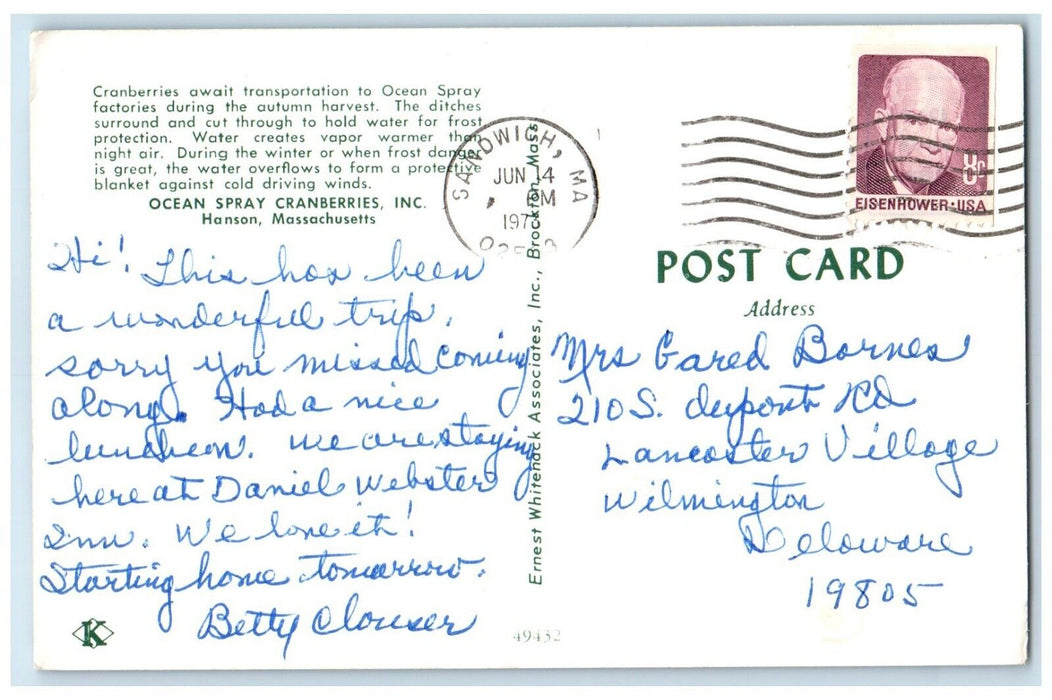 Cranberries await transportation to Ocean Spray
factories during the autumn harvest. The ditches
surround and cut through to hold water for frost
protection. Water creates vapor warmer than
night air. During the winter or when frost danger
is great, the water overflows to form a protective
blanket against cold driving winds.
OCEAN SPRAY CRANBERRIES, INC.
Hanson, Massachusetts
Hi! This has been
a wonderful trip,
sorry you missed coming
along. Had a nice
luncheon. We are staying
here at Daniel Webster
Inn. We love it!
Starting home tomorrow.
Betty Clouser
K
Ernest Whitehack Associates, Inc., Brockton, Mass.
49432
SANDWICH, MA
JUN 14
PM
8c
EISENHOWER·USA
POST CARD
Address
Mrs Gared Barnes
210 S. dupont Rd
Lancaster Village
Wilmington
Delaware
19805